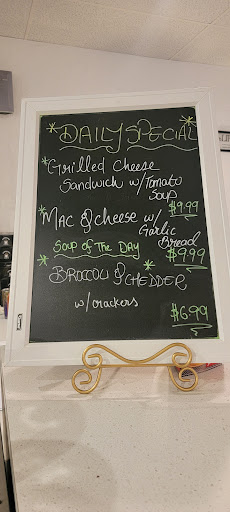 *DAILY SPECIAL*
*Grilled Cheese
Sandwich w/Tomato
Soup
$9.99
*MAC & Cheese w/
Garlic
Bread
$9.99
*SOUP OF THE DAY*
BROCCOLI & CHEDDER
w/crackers
$6.99